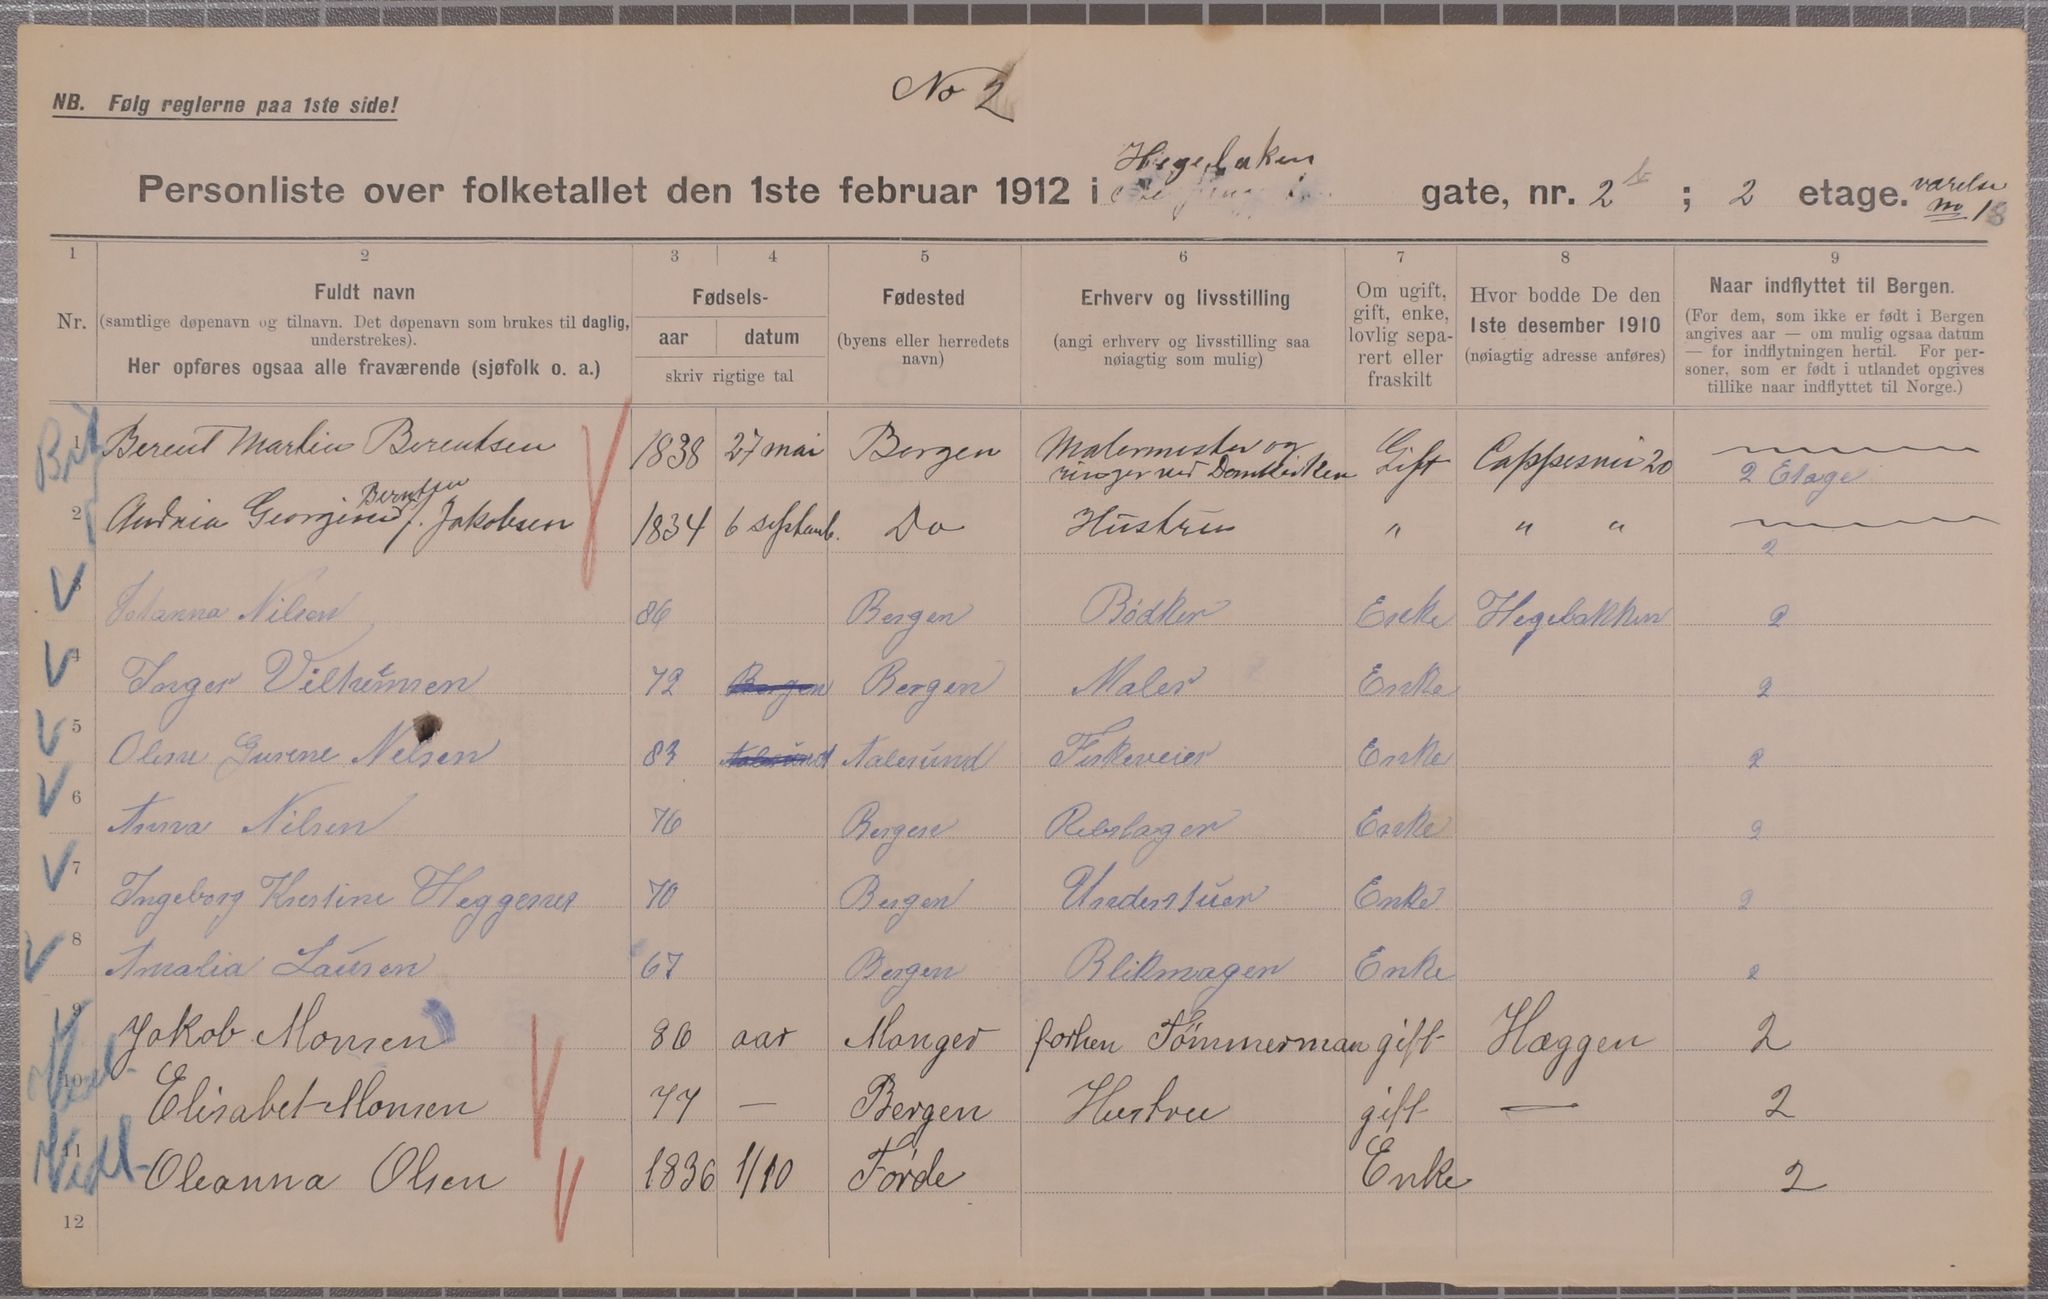 No 2
NB. Følg reglerne paa 1ste side!
Hegebaken
Personliste over folketallet den 1ste februar 1912 i gate, nr. 2 b ; 2 etage. værelse
no 18
1 2 3 4 5 6 7 8 9
Nr. Fuldt navn (samtlige døpenavn og tilnavn. Det døpenavn som brukes til daglig, understrekes). Her opføres ogsaa alle fraværende (sjøfolk o. a.)
Fødsels-
aar datum
skriv rigtige tal
Fødested (byens eller herredets navn)
Erhverv og livsstilling (angi erhverv og livsstilling saa nøiagtig som mulig)
Om ugift, gift, enke, lovlig separert eller fraskilt
Hvor bodde De den 1ste desember 1910 (nøiagtig adresse anføres)
Naar indflyttet til Bergen. (For dem, som ikke er født i Bergen angives aar — om mulig ogsaa datum — for indflytningen hertil. For personer, som er født i utlandet opgives tillike naar indflyttet til Norge.)
1 Berent Martin Berentsen 1838 27 mai Bergen Malermester og ringer ved Domkirken Gift Cappesvei 20 2 Etage
2 Andria Georgine Berntsen f. Jakobsen 1834 6 septemb. Do Hustru " " " 2
3 Johanna Nilsen 86 Bergen Bödker Enke Hegebakken 2
4 Inger Vilhelmsen 72 Bergen Bergen Maler Enke 2
5 Oline Gurene Nelsen 83 Aalesund Aalesund Fiskeveier Enke 2
6 Anna Nilsen 76 Bergen Rebslager Enke 2
7 Ingeborg Kristine Heggernes 70 Bergen Understuer Enke 2
8 Amalia Laursen 67 Bergen Blikmager Enke 2
9 Jakob Monsen 86 aar Manger forhen Tömmerman gift Hæggen 2
10 Elisabet Monsen 77 — Bergen Hustru gift — 2
11 Oleanna Olsen 1836 1/10 Førde Enke 2
12